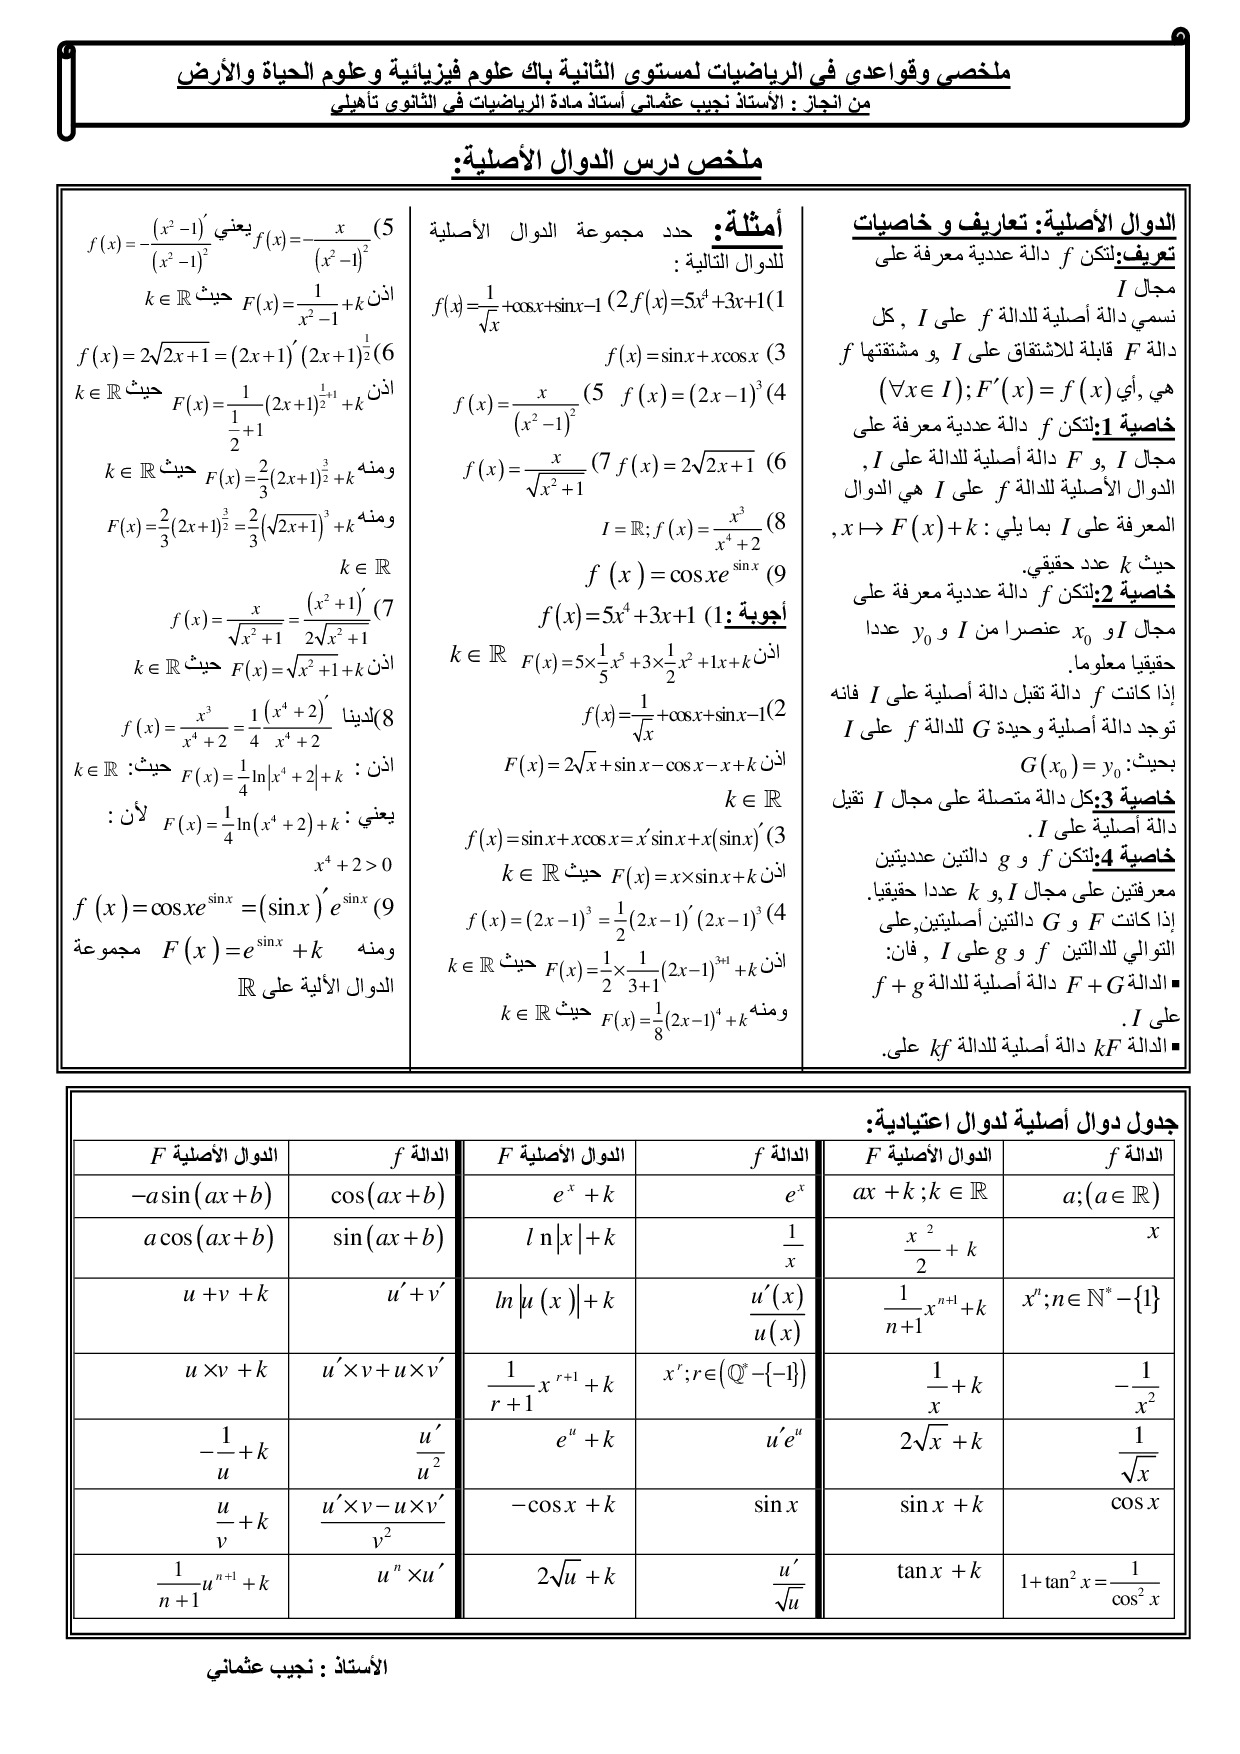 ملخصي وقواعدي في الرياضيات لمستوى الثانية باك علوم فيزيائية وعلوم الحياة والأرض
من انجاز : الأستاذ نجيب عثماني أستاذ مادة الرياضيات في الثانوي تأهيلي
ملخص درس الدوال الأصلية:
الدوال الأصلية: تعاريف و خاصيات
تعريف:لتكن f دالة عددية معرفة على
مجال I
نسمي دالة أصلية للدالة f على I , كل
دالة F قابلة للاشتقاق على I ,و مشتقتها f
هي ,أي (∀x∈I);F′(x)=f(x)
خاصية 1:لتكن f دالة عددية معرفة على
مجال I ,و F دالة أصلية للدالة على I ,
الدوال الأصلية للدالة f على I هي الدوال
المعرفة على I بما يلي : x↦F(x)+k ,
حيث k عدد حقيقي.
خاصية 2:لتكن f دالة عددية معرفة على
مجال I و x₀ عنصرا من I و y₀ عددا
حقيقيا معلوما.
إذا كانت f دالة تقبل دالة أصلية على I فانه
توجد دالة أصلية وحيدة G للدالة f على I
بحيث: G(x₀)=y₀
خاصية 3:كل دالة متصلة على مجال I تقيل
دالة أصلية على I .
خاصية 4:لتكن f و g دالتين عدديتين
معرفتين على مجال I ,و k عددا حقيقيا.
إذا كانت F و G دالتين أصليتين,على
التوالي للدالتين f و g على I , فان:
▪ الدالة F+G دالة أصلية للدالة f+g
على I .
▪ الدالة kF دالة أصلية للدالة kf على.
أمثلة: حدد مجموعة الدوال الأصلية
للدوال التالية :
1) f(x)=5x⁴+3x+1 2) f(x)=1/√x+cosx+sinx−1
3) f(x)=sinx+xcosx
4) f(x)=(2x−1)³ 5) f(x)=x/(x²−1)²
6) f(x)=2√(2x+1) 7) f(x)=x/√(x²+1)
8) I=ℝ;f(x)=x³/(x⁴+2)
9) f(x)=cosxe^(sinx)
أجوبة :1) f(x)=5x⁴+3x+1
اذن F(x)=5×1/5x⁵+3×1/2x²+1x+k k∈ℝ
2) f(x)=1/√x+cosx+sinx−1
اذن F(x)=2√x+sinx−cosx−x+k
k∈ℝ
3) f(x)=sinx+xcosx=x′sinx+x(sinx)′
اذن F(x)=x×sinx+k حيث k∈ℝ
4) f(x)=(2x−1)³=1/2(2x−1)′(2x−1)³
اذن F(x)=1/2×1/(3+1)(2x−1)³⁺¹+k حيث k∈ℝ
ومنه F(x)=1/8(2x−1)⁴+k حيث k∈ℝ
5) f(x)=−x/(x²−1)² يعني f(x)=−(x²−1)′/(x²−1)²
اذن F(x)=1/(x²−1)+k حيث k∈ℝ
6) f(x)=2√(2x+1)=(2x+1)′(2x+1)^(1/2)
اذن F(x)=1/(1/2+1)(2x+1)^(1/2+1)+k حيث k∈ℝ
ومنه F(x)=2/3(2x+1)^(3/2)+k حيث k∈ℝ
ومنه F(x)=2/3(2x+1)^(3/2)=2/3(√(2x+1))³+k
k∈ℝ
7) f(x)=x/√(x²+1)=(x²+1)′/(2√(x²+1))
اذن F(x)=√(x²+1)+k حيث k∈ℝ
8)لدينا f(x)=x³/(x⁴+2)=1/4 (x⁴+2)′/(x⁴+2)
اذن : F(x)=1/4ln|x⁴+2|+k حيث: k∈ℝ
يعني : F(x)=1/4ln(x⁴+2)+k لأن :
x⁴+2>0
9) f(x)=cosxe^(sinx)=(sinx)′e^(sinx)
ومنه F(x)=e^(sinx)+k مجموعة
الدوال الألية على ℝ
جدول دوال أصلية لدوال اعتيادية:
الدالة f الدوال الأصلية F الدالة f الدوال الأصلية F الدالة f الدوال الأصلية F
a;(a∈ℝ) ax+k;k∈ℝ e^x e^x+k cos(ax+b) −asin(ax+b)
x x²/2+k 1/x ln|x|+k sin(ax+b) acos(ax+b)
xⁿ;n∈ℕ*−{1} 1/(n+1)x^(n+1)+k u′(x)/u(x) ln|u(x)|+k u′+v′ u+v+k
−1/x² 1/x+k x^r;r∈(ℚ*−{−1}) 1/(r+1)x^(r+1)+k u′×v+u×v′ u×v+k
1/√x 2√x+k u′e^u e^u+k u′/u² −1/u+k
cosx sinx+k sinx −cosx+k (u′×v−u×v′)/v² u/v+k
1+tan²x=1/cos²x tanx+k u′/√u 2√u+k uⁿ×u′ 1/(n+1)u^(n+1)+k
الأستاذ : نجيب عثماني